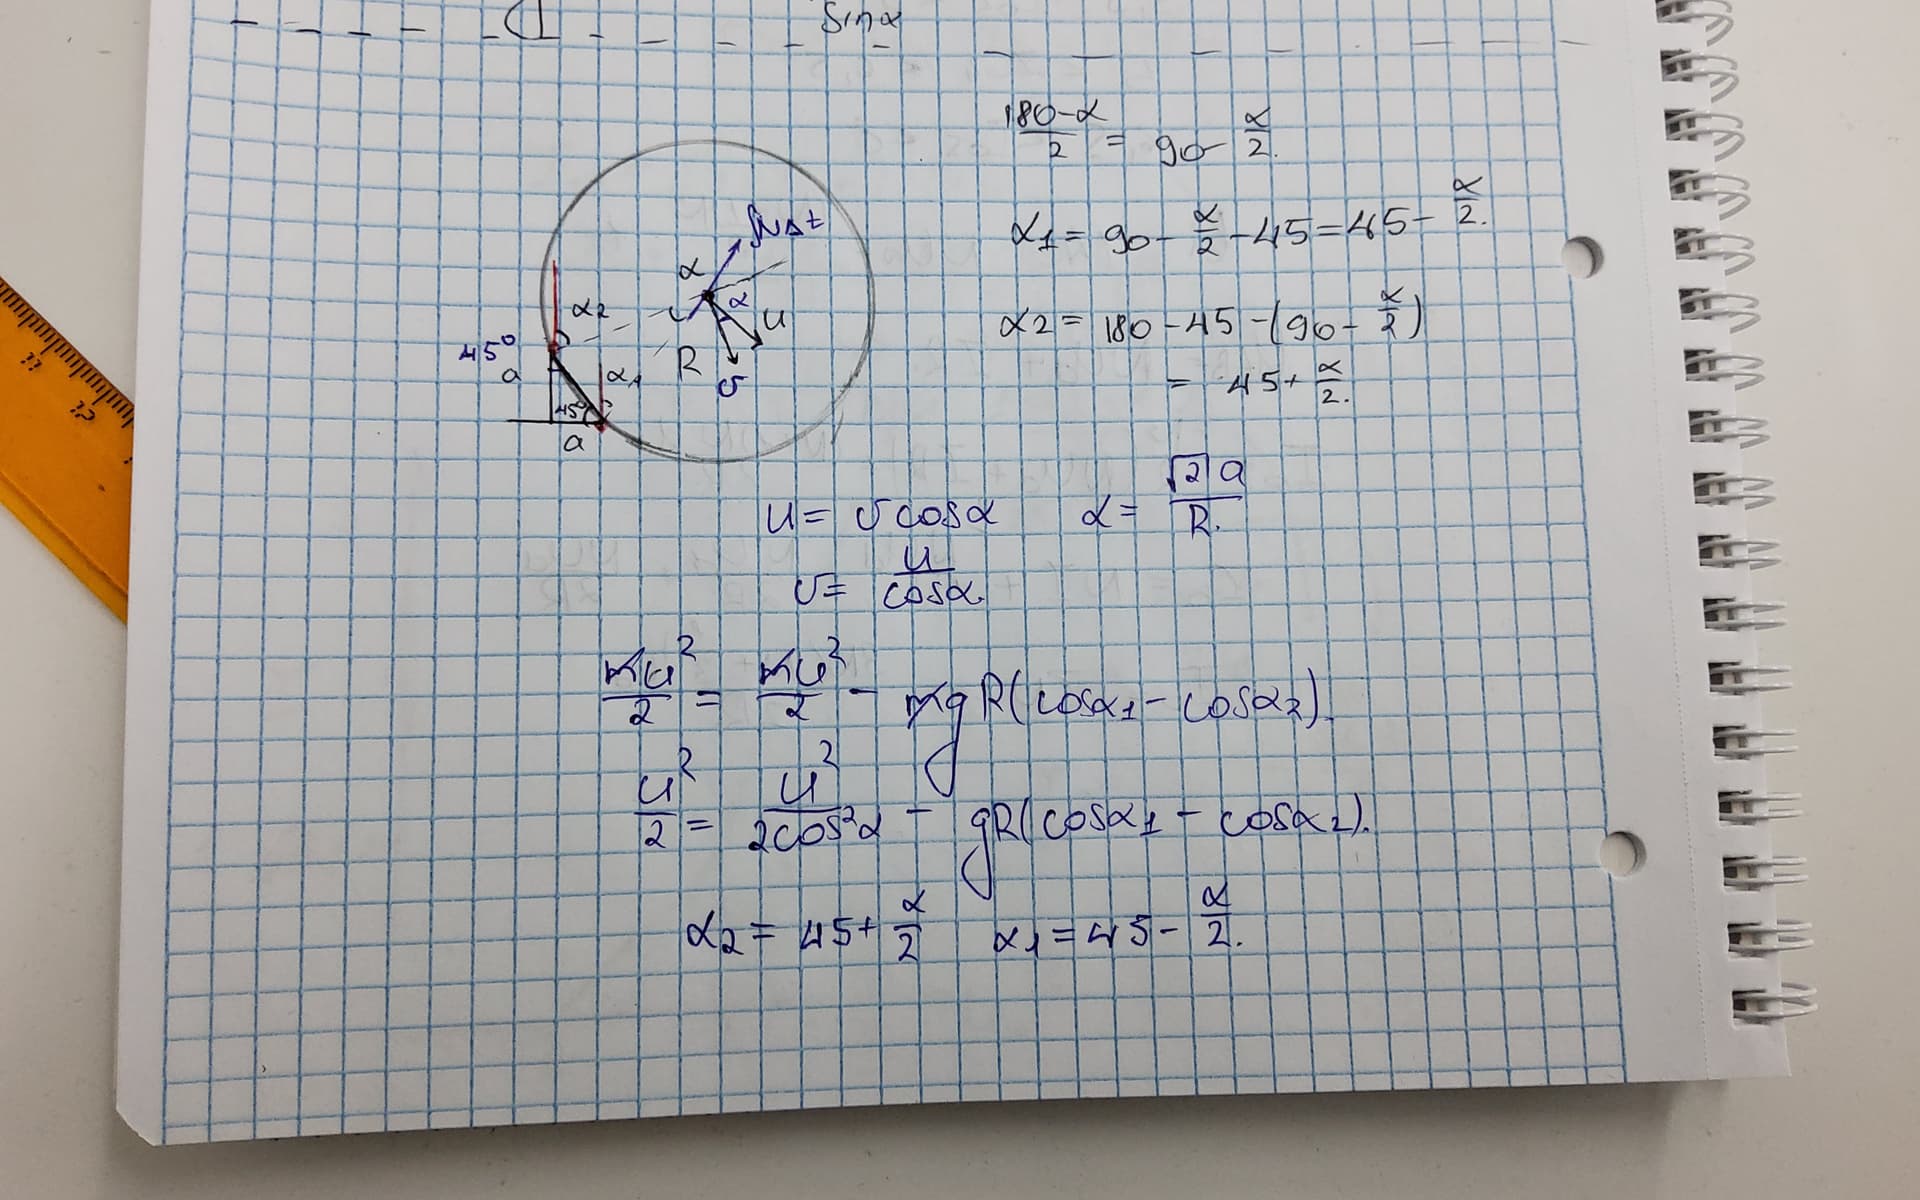 sinα
(180-α)/2 = 90 - α/2.
α1 = 90 - α/2 - 45 = 45 - α/2.
α2 = 180 - 45 - (90 - α/2)
= 45 + α/2.
NΔt
α
α
u
υ
R
α2
α1
45°
a
45°
a
u = υ cosα   α = √2 a / R.
υ = u / cosα.
mu²/2 = mu²/2 - mgR(cosα1 - cosα2).
u²/2 = u²/2cos²α - gR(cosα1 - cosα2).
α2 = 45 + α/2   α1 = 45 - α/2.
11
12